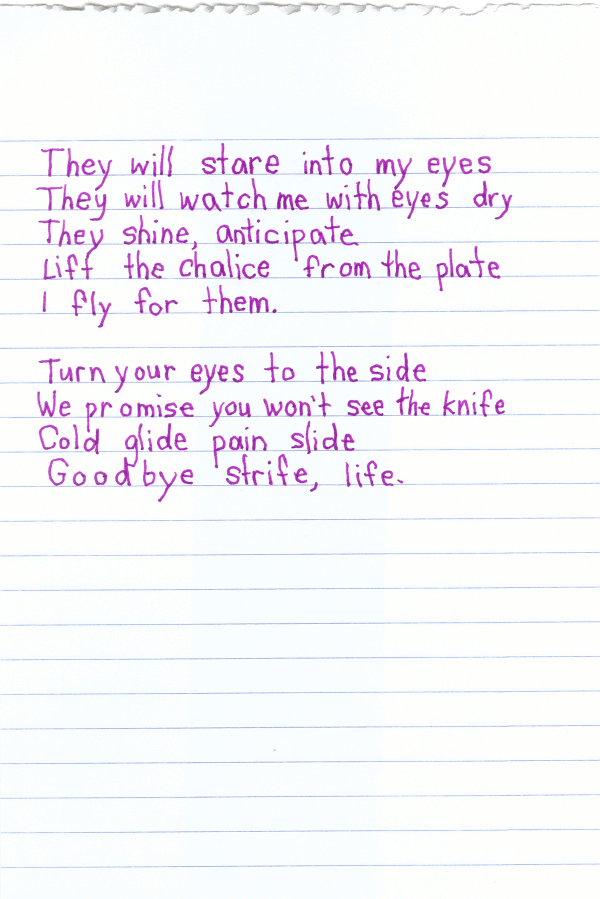 They will stare into my eyes
They will watch me with eyes dry
They shine, anticipate
Lift the chalice from the plate
I fly for them.
Turn your eyes to the side
We promise you won't see the knife
Cold glide pain slide
Goodbye strife, life.